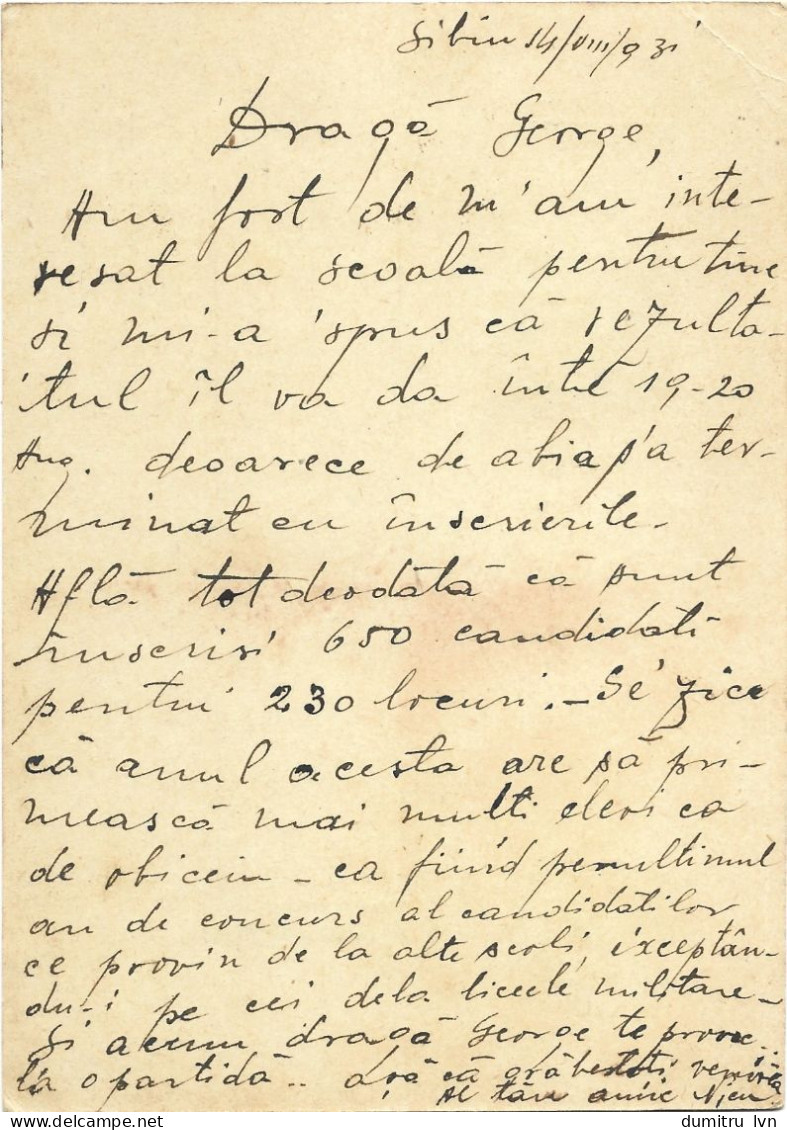 Sibiu 14/VIII/931
Dragă George,
Am fost de m'am inte-
resat la scoală pentru tine
si mi-a spus că rezulta-
tul îl va da între 19-20
Aug. deoarece de abia s'a ter-
minat cu înscrierile.
Află tot deodată că sunt
înscrisi 650 candidati
pentru 230 locuri. - Se zice
că anul acesta are să pri-
mească mai multi elevi ca
de obiceiu - ca fiind penultimul
an de concurs al candidatilor
ce provin de la alte scoli, exceptân-
du-i pe cei dela liceele militare -
Si acum dragă George te provoc..
la o partidă..
Al tău amic Nicu
dumitru lvn